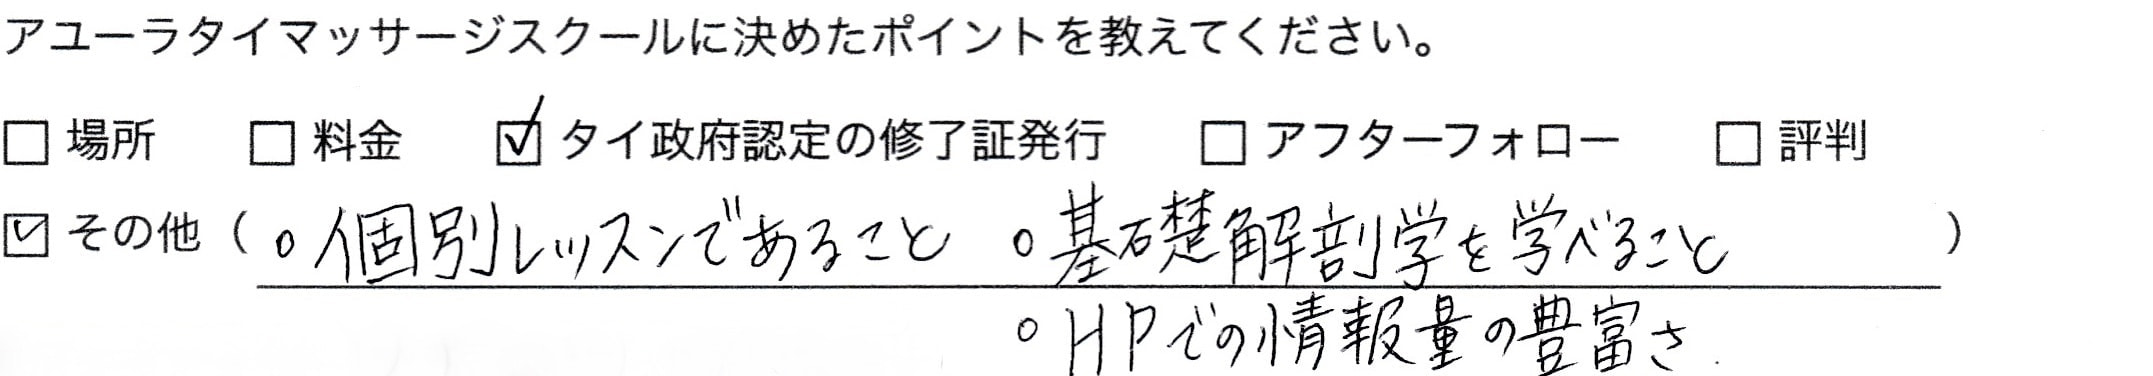 アユーラタイマッサージスクールに決めたポイントを教えてください。
□ 場所 □ 料金 ☑ タイ政府認定の修了証発行 □ アフターフォロー □ 評判
☑ その他（ 。個別レッスンであること 。基礎解剖学を学べること ）
。HPでの情報量の豊富さ.